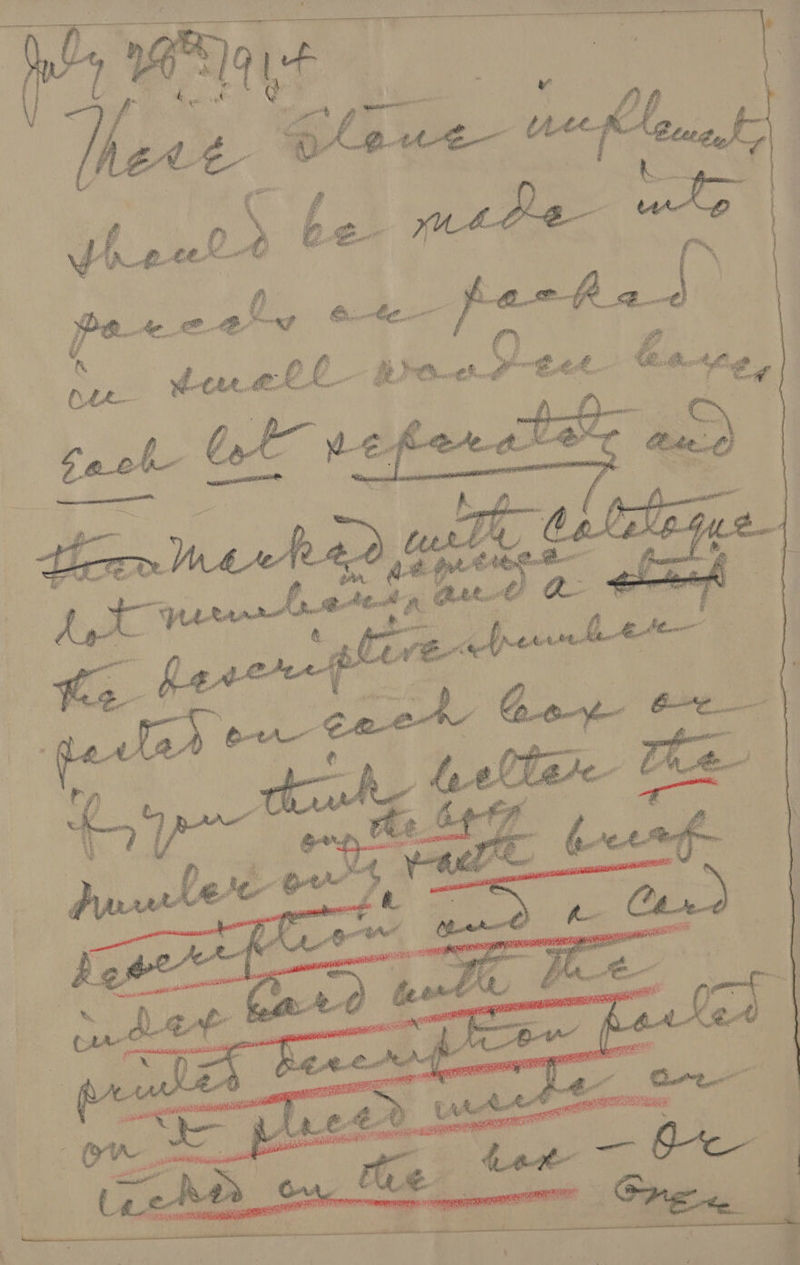 July 28th 1914
These Stone implements
should be made into
parcels or packed
in small wooden boxes
Each lot separately and
then marked with Catalogue
in sequence
lot numbers, and a
the descriptive number
pasted on each box or
if you think better the
on the box
number only with brief
description and a Card
index Card with the
printed description pasted
on it placed inside or
tacked on the box — Or
over